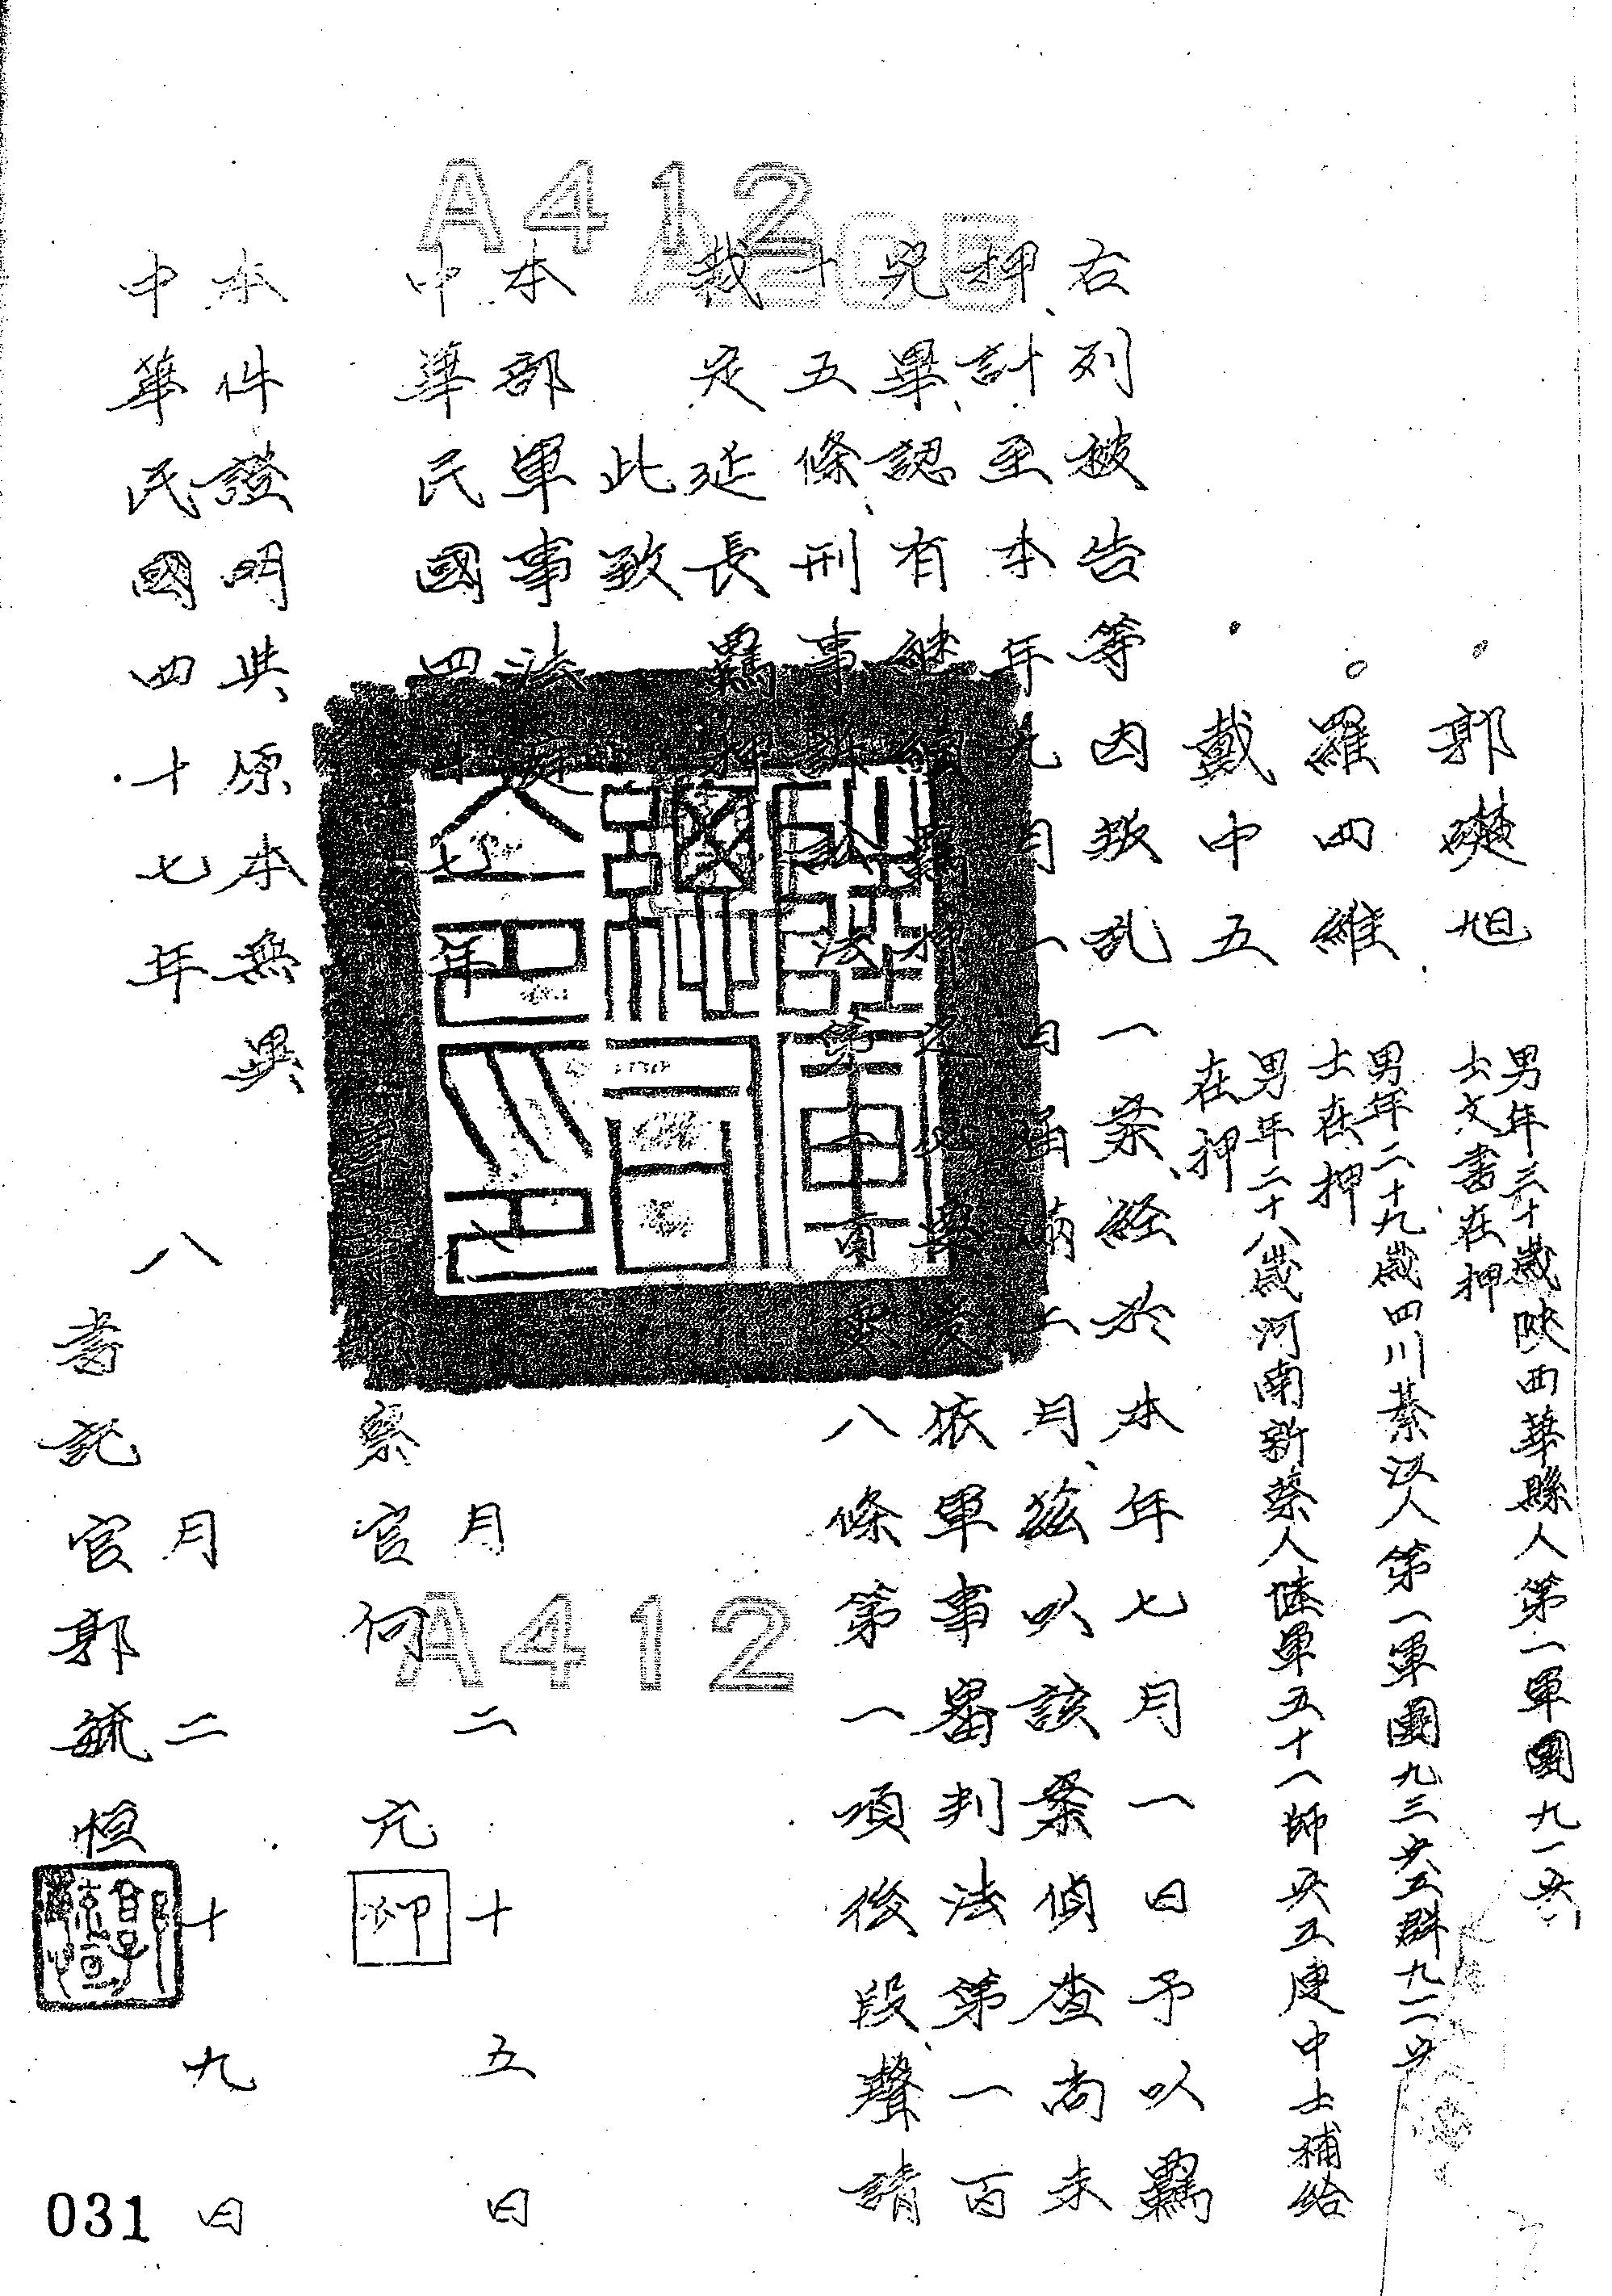 郭礎旭 男年三十歲陝西華縣人第一軍團九一六
士文書在押
羅四維 男年二十九歲四川綦江人第一軍團九三六五群九二六
士在押
戴中五 男年二十八歲河南新蔡人陸軍五十一師六工連中士補給
在押
右列被告等因叛乱一案經於本年七月一日予以羈
押、計至本年九月一日屆滿二月、茲以該案偵查尚未
完畢、認有繼續羈押之必要爰依軍事審判法第一百
十五條、刑事訴訟法第一百零八條第一項後段、聲請
裁定延長羈押
此致
本部軍事法庭
中華民國四十七年八月二十五日
軍事檢察官何 元
本件證明與原本無異
中華民國四十七年八月二十九日
書記官郭毓恒
A412
A412
031